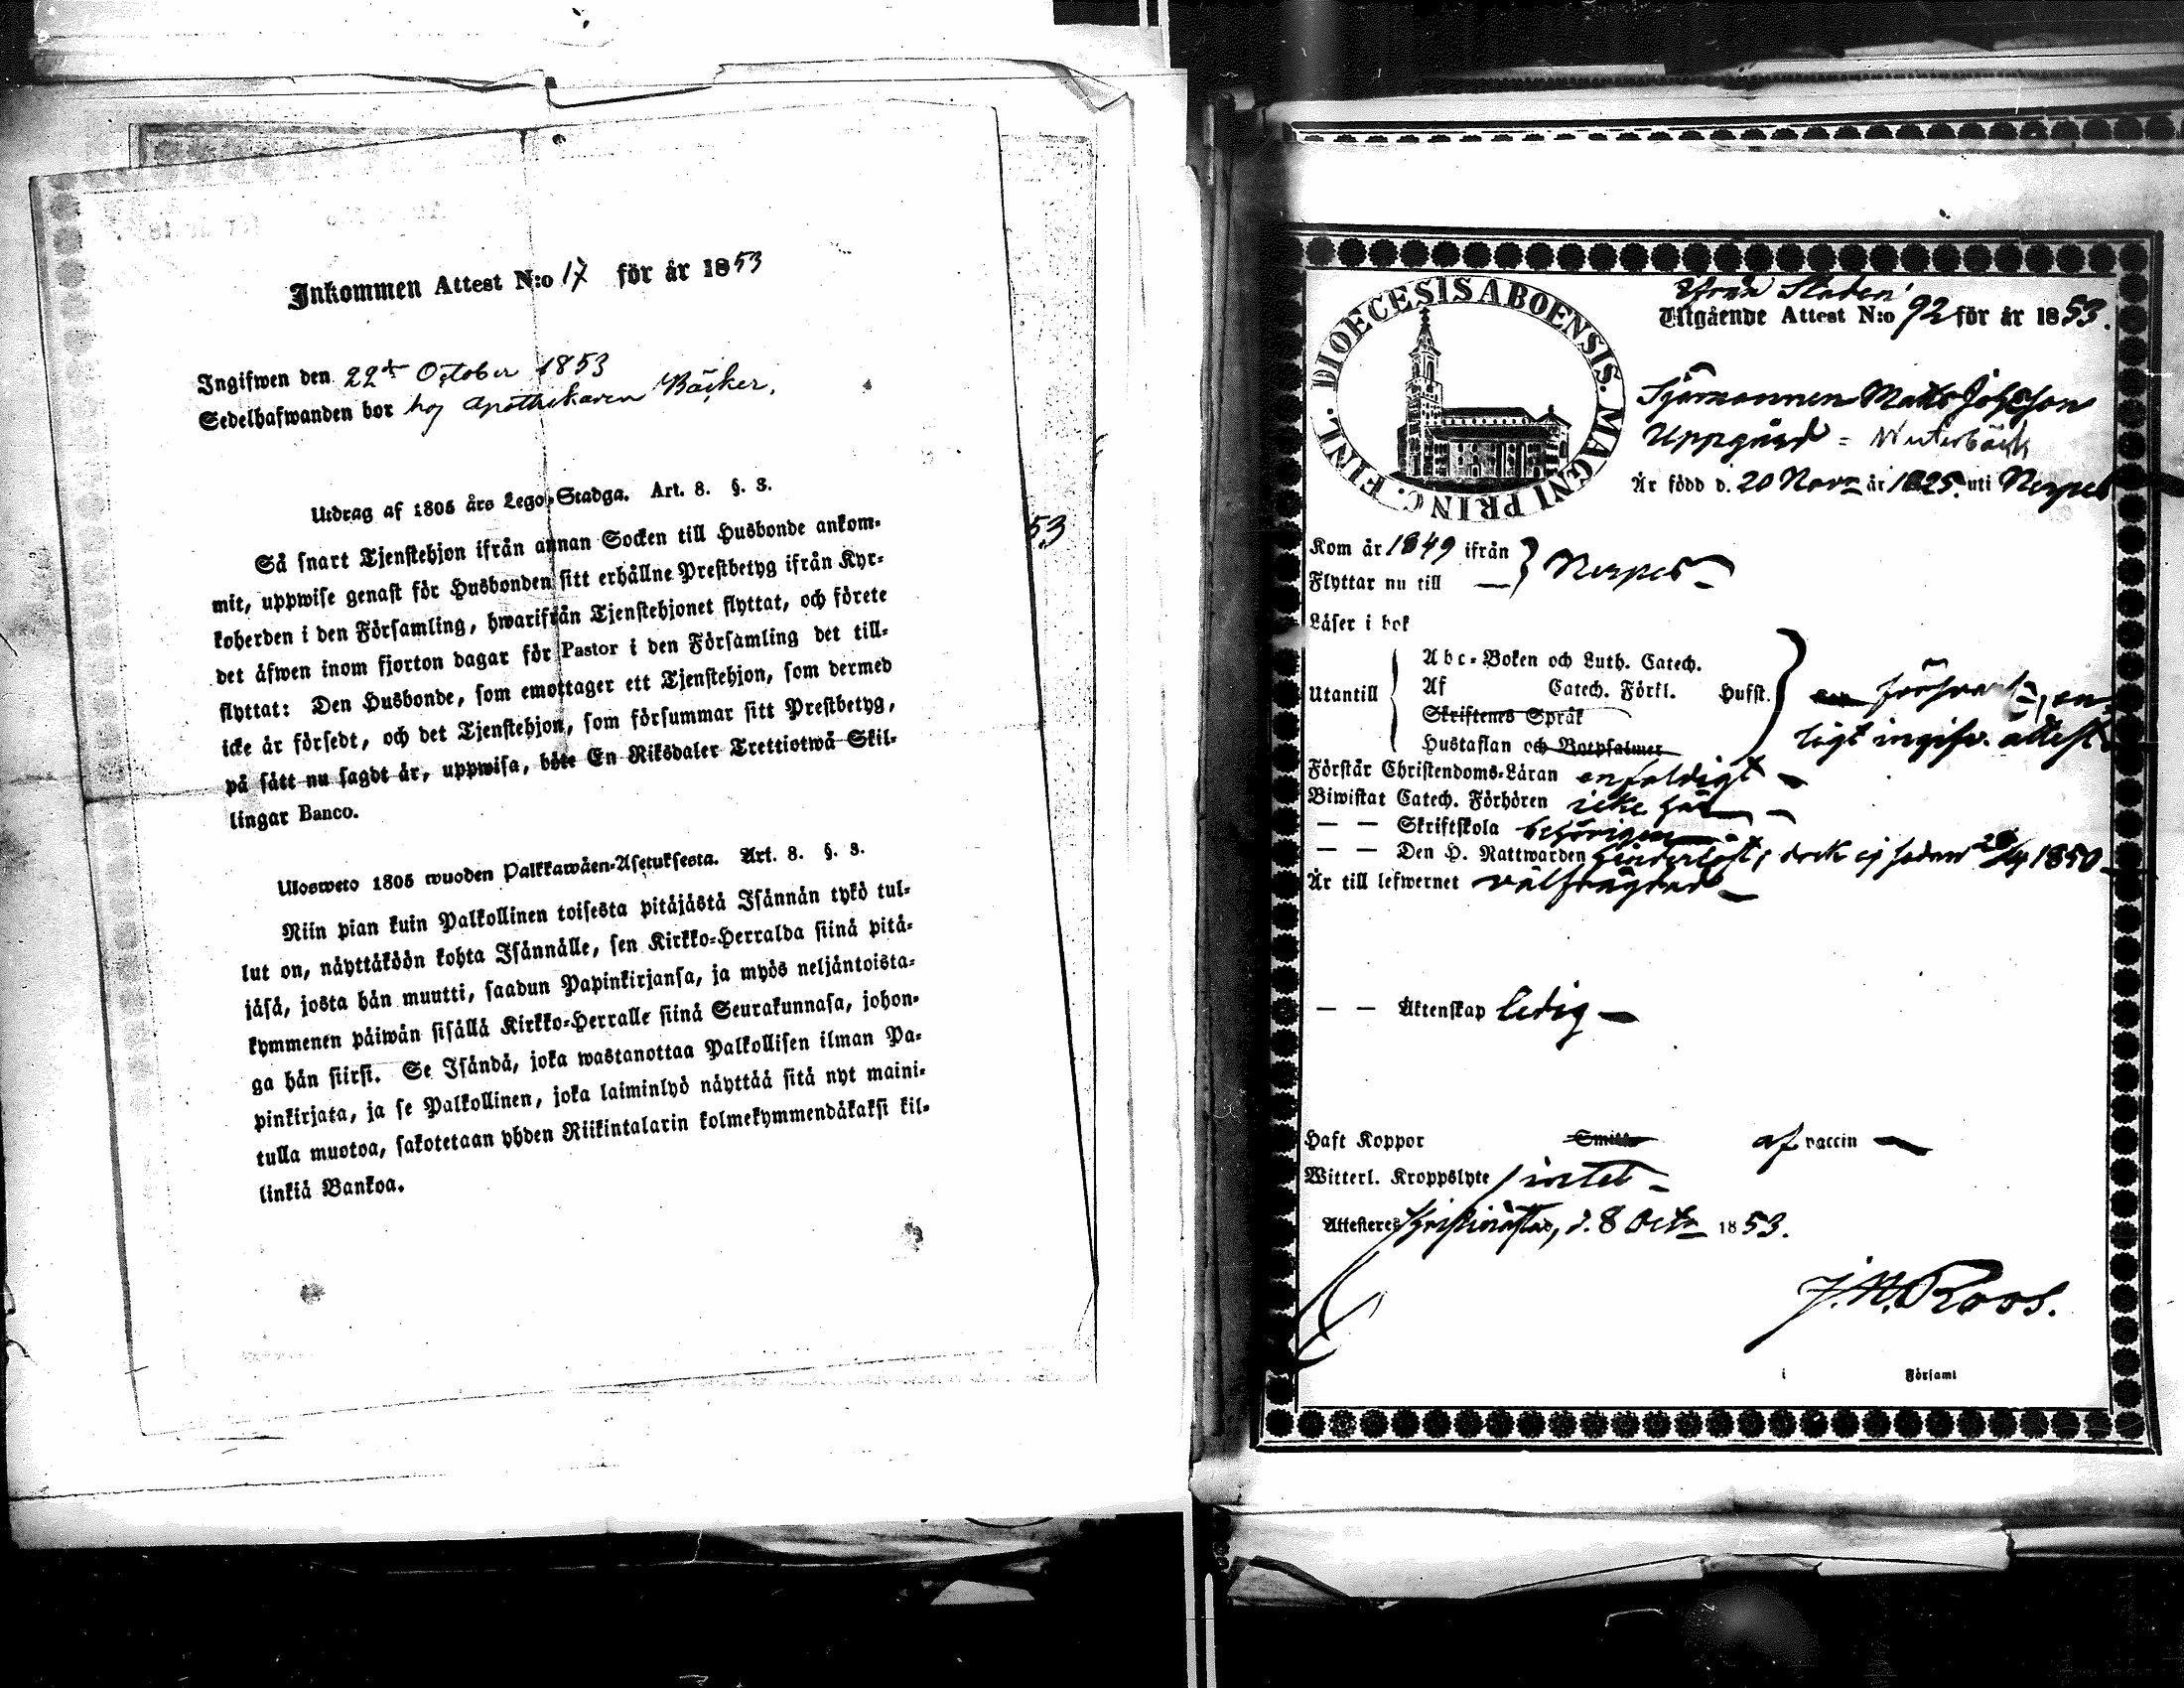 Inkommen Attest N:o 17 för år 1853
Ingifwen den 22dr October 1853
Sedelhafwanden bor hoj Apothekaren Bäcker.
Utdrag af 1805 års Lego-Stadga. Art. 8. §. 3.
Så snart Tjenstehjon ifrån annan Socken till Husbonde ankom-
mit, uppwise genast för Husbonden sitt erhållne Prestbetyg ifrån Kyr-
koherden i den Församling, hwarifrån Tjenstehjonet flyttat, och förete
det äfwen inom fjorton dagar för Pastor i den Församling det till-
flyttat: Den Husbonde, som emottager ett Tjenstehjon, som dermed
icke är försedt, och det Tjenstehjon, som försummar sitt Prestbetyg,
på sätt nu sagdt är, uppwisa, böte En Riksdaler Trettiotwå Skil-
lingar Banco.
Ulosweto 1805 wuoden Palkkawäen-Asetuksesta. Art. 8. §. 3.
Niin pian kuin Palkollinen toisesta pitäjästä Isännän tykö tul-
lut on, näyttäköön kohta Isännälle, sen Kirkko-Herralda siinä pitä-
jäsä, josta hän muutti, saadun Papinkirjansa, ja myös neljäntoista-
kymmenen päiwän sisällä Kirkko-Herralle siinä Seurakunnasa, johon-
ga hän siirsi. Se Isändä, joka wastanottaa Palkollisen ilman Pa-
pinkirjata, ja se Palkollinen, joka laiminlyö näyttää sitä nyt maini-
tulla muotoa, sakotetaan yhden Riikintalarin kolmekymmendäkaksi kil-
linkiä Bankoa.
53
DIOECESIS ABOENSIS. MAGNI PRINC. FINL.
från Staden
Utgående Attest N:o 92 för år 1853.
Sjömannen Matts Johsson
Uppgård = Winterbäck
Är född d. 20 Novr år 1825. uti Nerpes
Kom år 1849 ifrån } Nerpes
Flyttar nu till
Läser i bok
Abc-Boken och Luth. Catech.
Utantill { Af Catech. Förkl. Hufst. } försvarl., en-
Skriftenes Språk
ligt ingifv. attest.
Hustaflan och Botpsalmer
Förstår Christendoms-Läran enfaldigt
Biwistat Catech. Förhören icke här
— — Skriftskola behörigen
— — Den H. Nattwarden hinderlöst; dock ej sedan 1850
Är till lefwernet välfrägdad
— — Äktenskap ledig
Haft Koppor Smitt af vaccin
Witterl. Kroppslyte intet
Attesteres Christinestad, d. 8 Octr 1853.
J. M. Roos.
i Församl